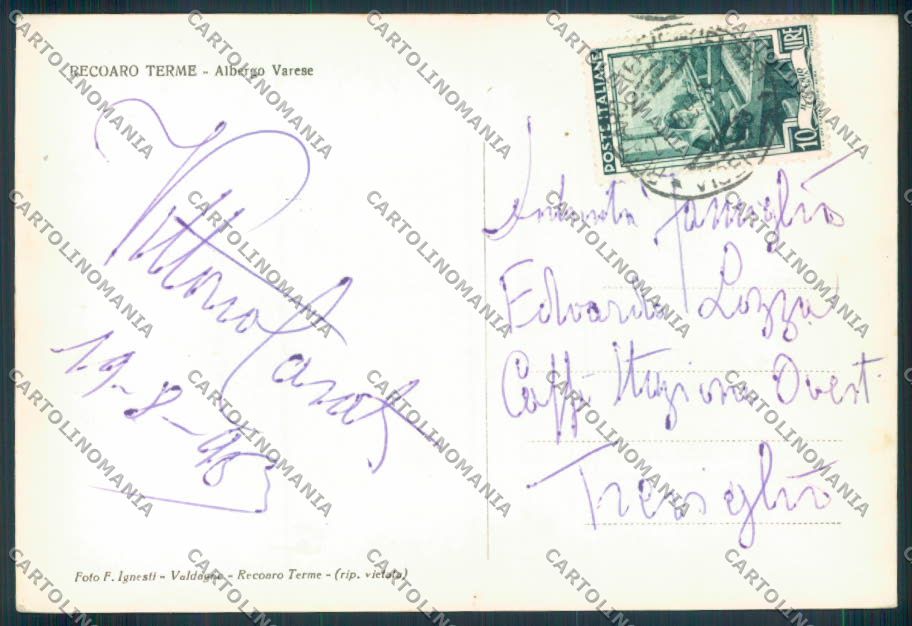 RECOARO TERME - Albergo Varese
POSTE ITALIANE
LIRE
10
Vittorio
19-8-953
famiglia
Edoardo Lozza
Caffè Stazione Ovest
Treviglio
Foto F. Ignesti - Valdagno - Recoaro Terme - (rip. vietata)
CARTOLINOMANIA